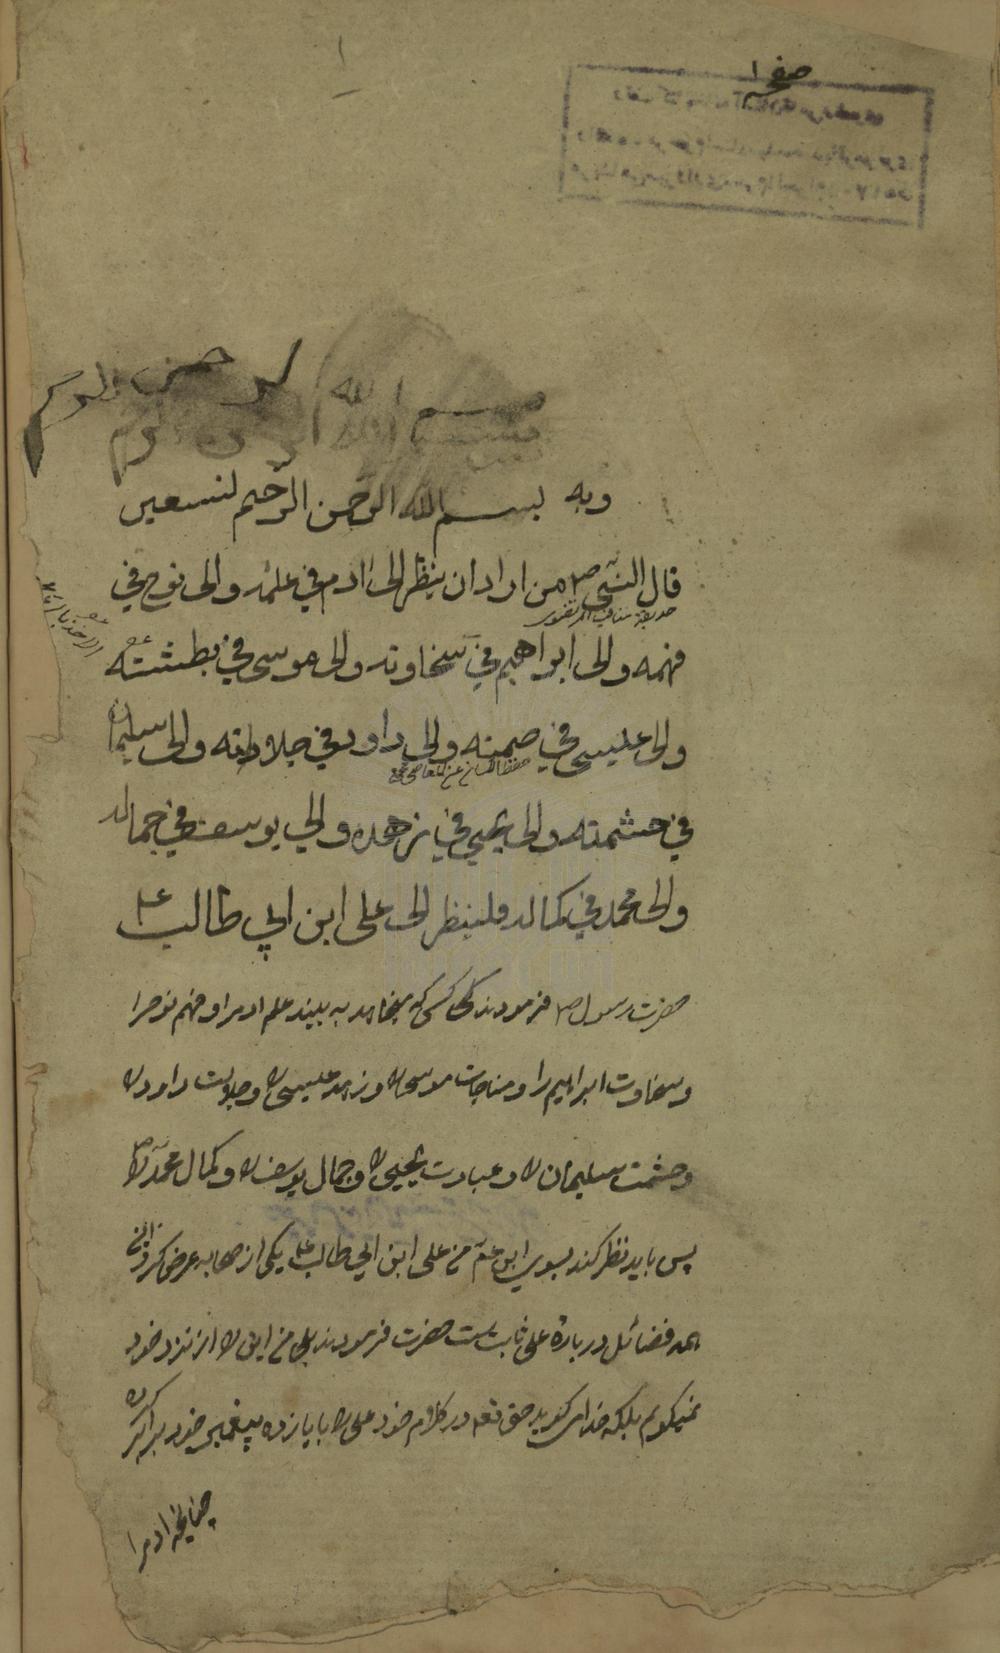 صفحه ۱
۱
بسم الله الرحمن الرحیم
وبه بسم الله الرحمن الرحیم نستعین
قال النبی ص من اراد ان ینظر الی ادم فی علمه والی نوح فی
حدیقة مناقب المرتضوی
فهمه والی ابراهیم فی سخاوته والی موسی فی بطشته
والی عیسی فی صمته والی داود فی جلادته والی سلیمان
حفظ اللسان عن المعاصی
فی حشمته والی یحیی فی زهده والی یوسف فی جماله
والی محمد فی کماله فلینظر الی علی ابن ابی طالب ع
حضرت رسول ص فرمودند کسی که میخواهد به بیند علم ادم را و فهم نوح را
و سخاوت ابراهیم را و مناجات موسی را و زهد عیسی را و جلادت داود را
و حشمت سلیمان را و عبادت یحیی را و جمال یوسف را و کمال محمد ص را
پس باید نظر کند بسوی ابن عم من علی ابن ابی طالب ع یکی از صحابه عرض کرد این
همه فضائل در باره علی ثابت است حضرت فرمودند بلی من این را از نزد خود
نمیگویم بلکه خدا میگوید حق تعه در کلام خود علی را با یازده پیغمبر خود برابر کرده
چنانچه ادم را